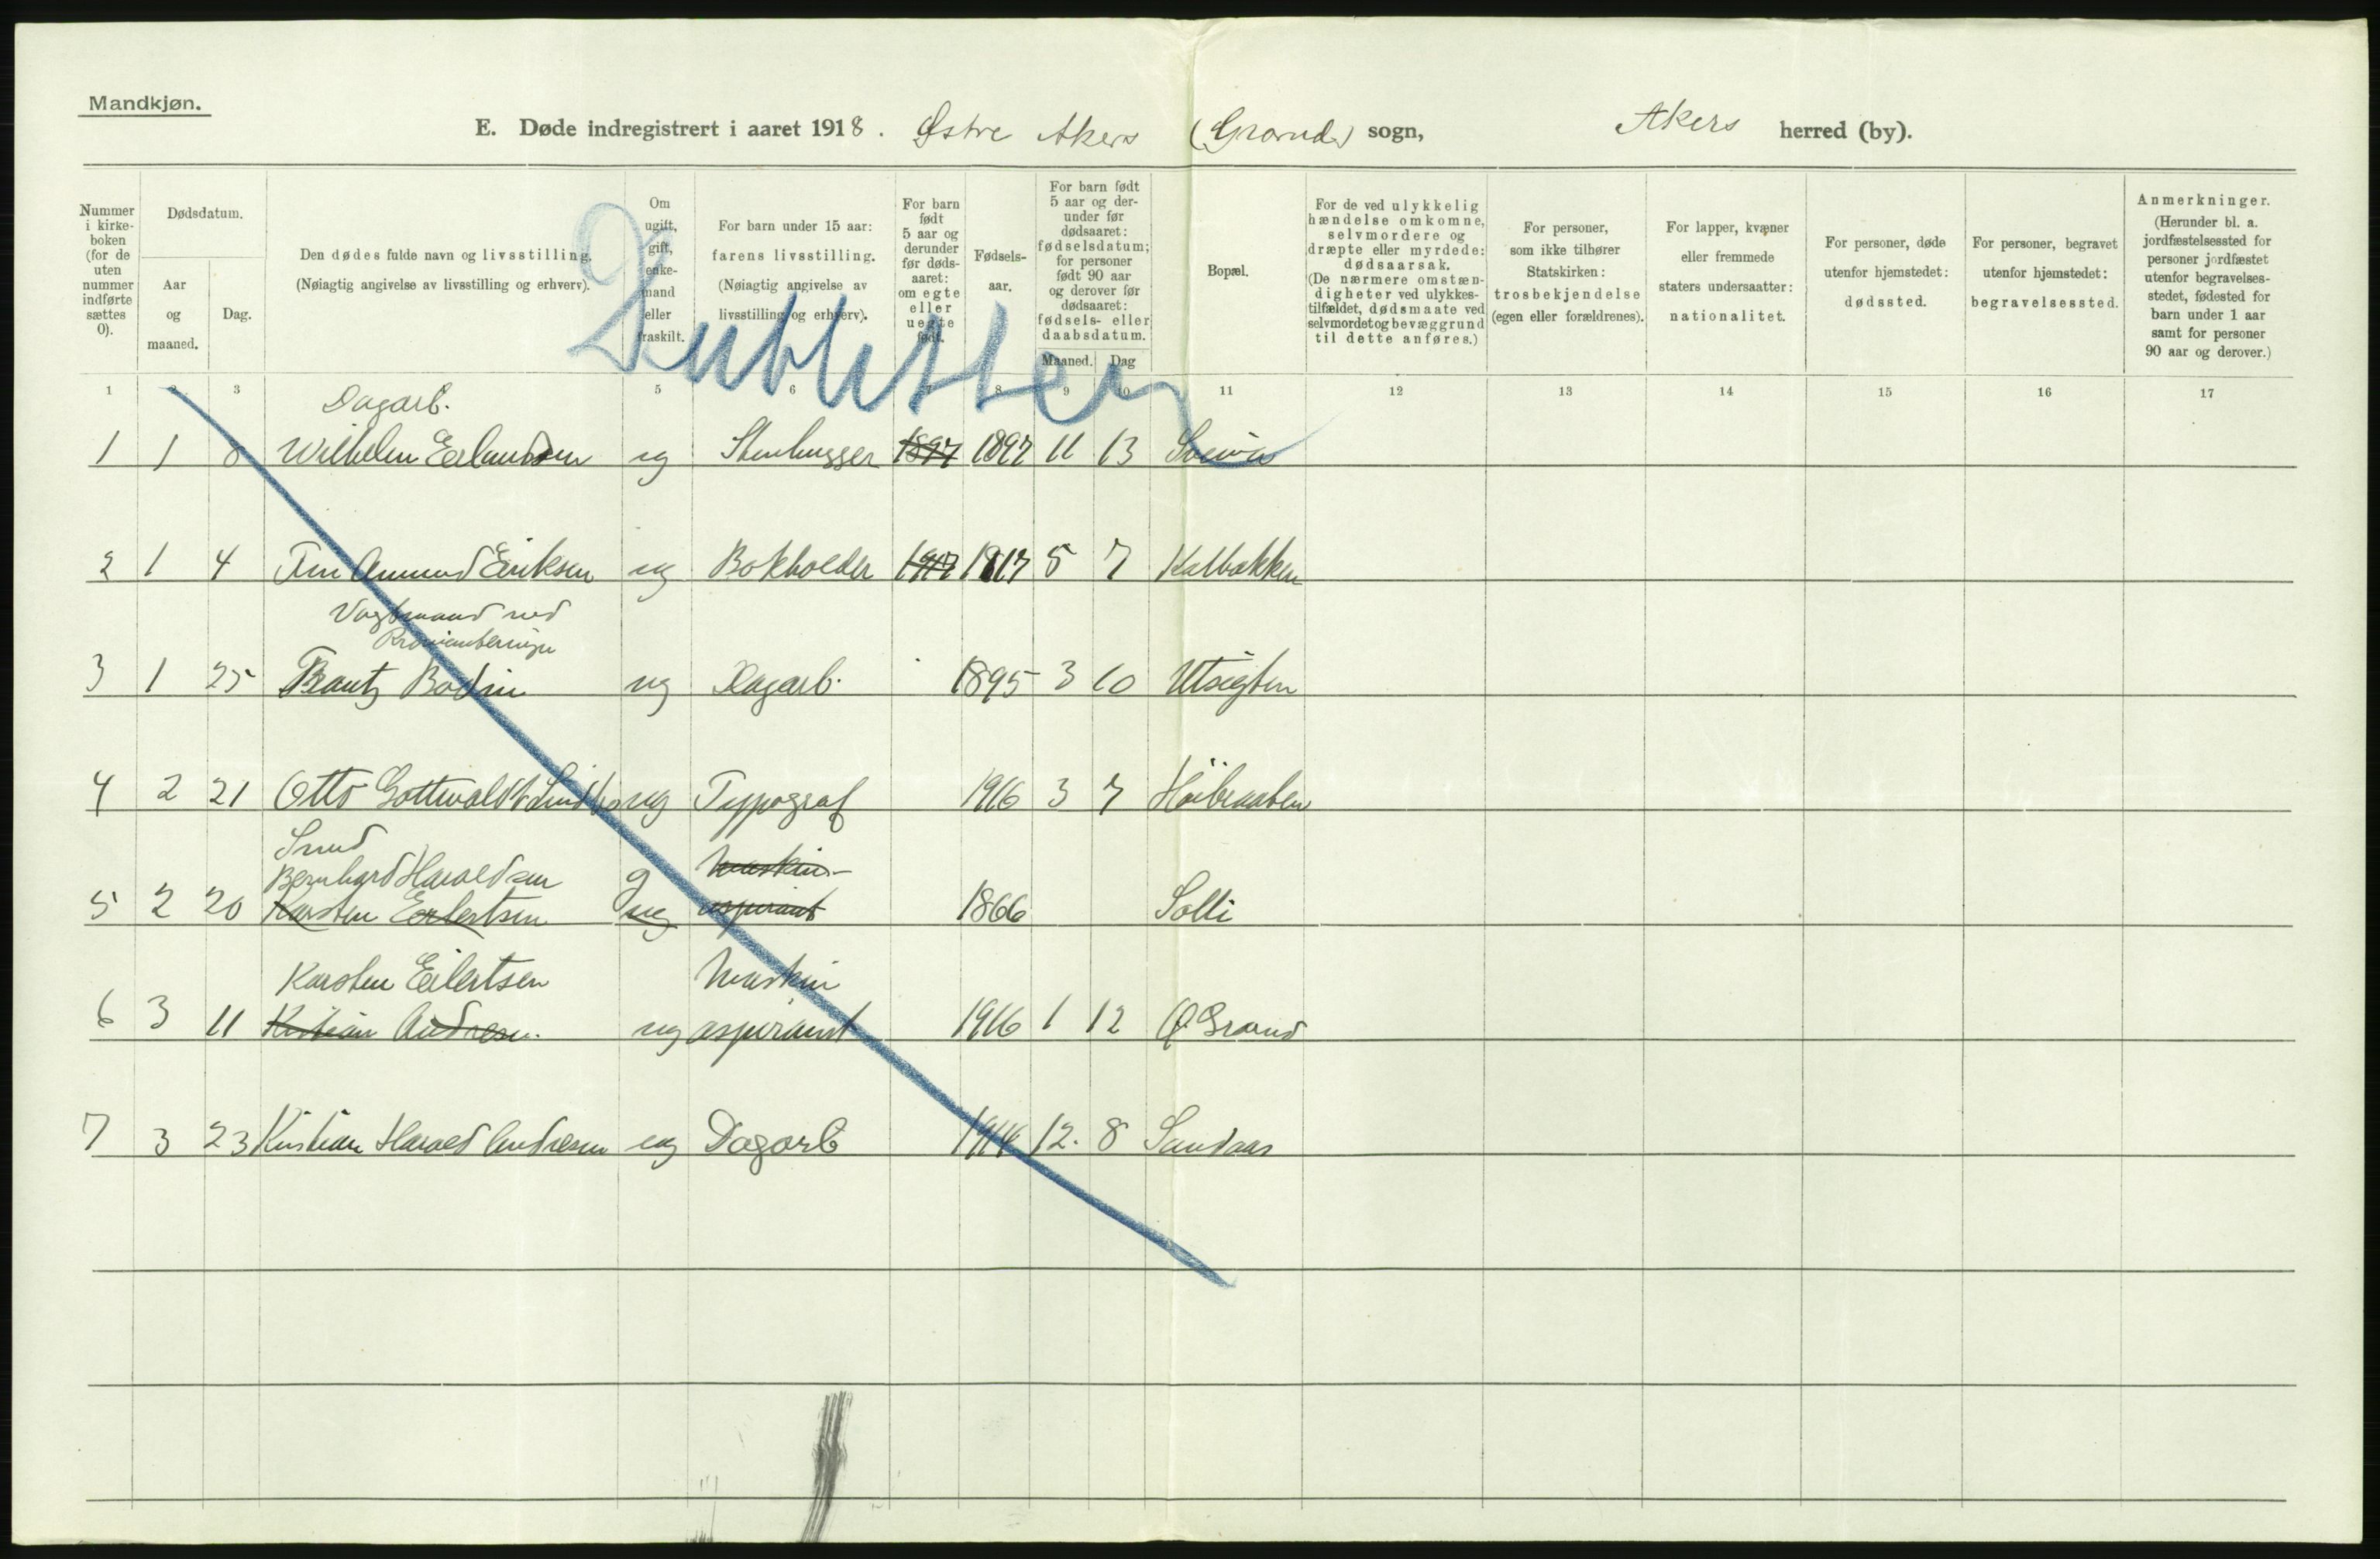 Mandkjøn.
E. Døde indregistrert i aaret 1918. Østre Akers (Grorud) sogn, Akers herred (by).
Nummer i kirkeboken (for de uten nummer indførte sættes 0).
Dødsdatum.
Aar og maaned.
Dag.
Den dødes fulde navn og livsstilling.
(Nøiagtig angivelse av livsstilling og erhverv).
Om ugift, gift, enkemand eller fraskilt.
For barn under 15 aar: farens livsstilling.
(Nøiagtig angivelse av livsstilling og erhverv).
For barn født 5 aar og derunder før dødsaaret: om egte eller uegte født.
Fødselsaar.
For barn født 5 aar og derunder før dødsaaret: fødselsdatum; for personer født 90 aar og derover før dødsaaret: fødsels- eller daabsdatum.
Maaned. Dag
Bopæl.
For de ved ulykkelig hændelse omkomne, selvmordere og dræpte eller myrdede: dødsaarsak.
(De nærmere omstændigheter ved ulykkestilfældet, dødsmaate ved selvmordet og bevæggrund til dette anføres.)
For personer, som ikke tilhører Statskirken: trosbekjendelse (egen eller forældrenes).
For lapper, kvæner eller fremmede staters undersaatter: nationalitet.
For personer, døde utenfor hjemstedet: dødssted.
For personer, begravet utenfor hjemstedet: begravelsessted.
Anmerkninger.
(Herunder bl. a. jordfæstelsessted for personer jordfæstet utenfor begravelsesstedet, fødested for barn under 1 aar samt for personer 90 aar og derover.)
1 2 3 5 6 7 8 9 10 11 12 13 14 15 16 17
Dubletter
Dagarb.
1 1 8 Wilhelm Erlandsen ug Stenhugger 1897 1897 11 13
2 1 4 Amund Eriksen ug Bokholder 1917 1917 5 7 Kalbakken
Vagtmand ved
3 1 25 Frantz Bodin ug Dagarb. 1895 3 10 Utsigten
4 2 21 Otto Gottwaldt ug Typograf 1916 3 7 Høibraaten
Smed
Bernhard Haraldsen g Maskin-
5 2 20 Karsten Eilertsen ug aspirant 1866 Solli
Karsten Eilertsen Maskin
6 3 11 Kristian Andresen. ug aspirant 1916 1 12 Ø Grorud
7 3 23 Kristian Harald Andresen ug Dagarb 1914 12. 8 Sandaas